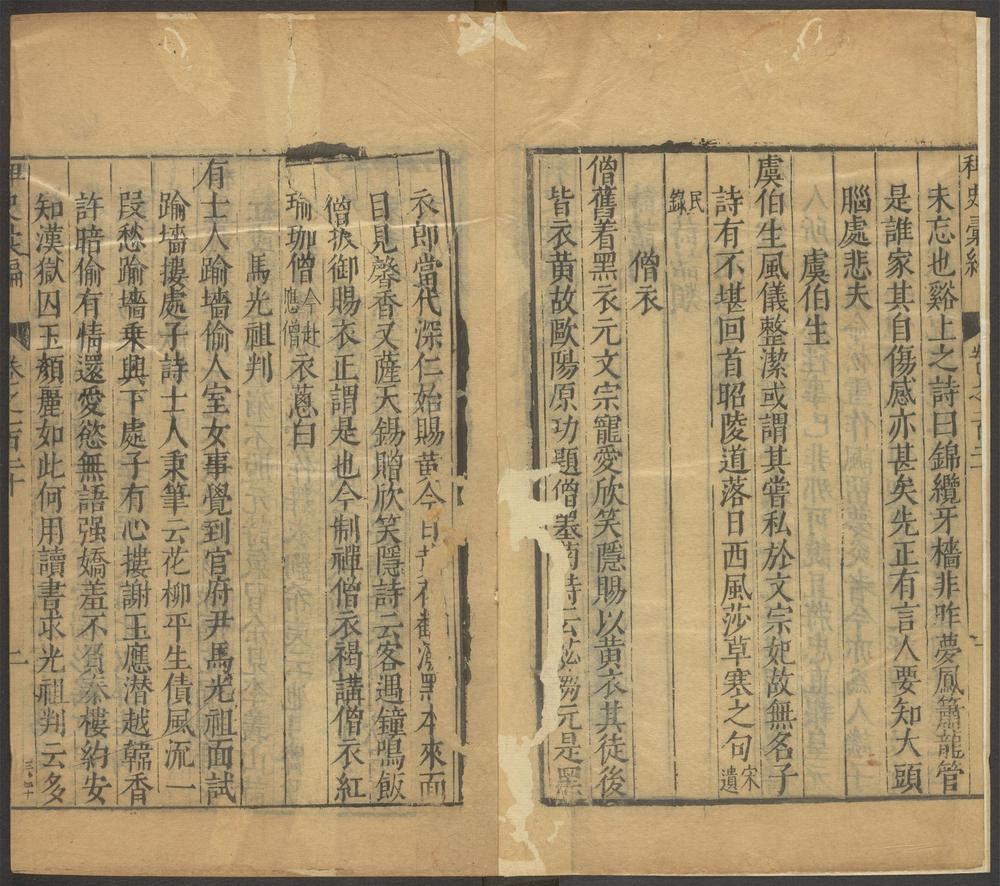 稗史彙編
卷之百二十
一
未忘也谿上之詩曰錦纜牙檣非昨夢鳳簫龍管
是誰家其自傷感亦甚矣先正有言人要知大頭
腦處悲夫
虞伯生
虞伯生風儀整潔或謂其嘗私於文宗妃故無名子
詩有不堪回首昭陵道落日西風莎草塞之句宋遺
民錄
僧衣
僧舊着黑衣元文宗寵愛欣笑隱賜以黃衣其徒後
皆衣黃故歐陽原功題僧墓菊詩云苾芻元是黑
衣郎當代深仁始賜黃今日黑本來面
目見馨香又薩天錫贈欣笑隱詩云客遇鐘鳴飯
僧披御賜衣正謂是也今制禪僧衣褐講僧衣紅
瑜珈僧今赴應僧衣蔥白
馬光祖判
有士人踰墻偷人室女事覺到官府尹馬光祖面試
踰墻摟處子詩士人秉筆云花柳平生債風流一
段愁踰墻乘興下處子有心摟謝玉應潛越韓香
許暗偷有情還愛慾無語强嬌羞不負秦樓約安
知漢獄囚玉顏麗如此何用讀書求光祖判云多
稗史彙編
卷之百二十
二
三、四十